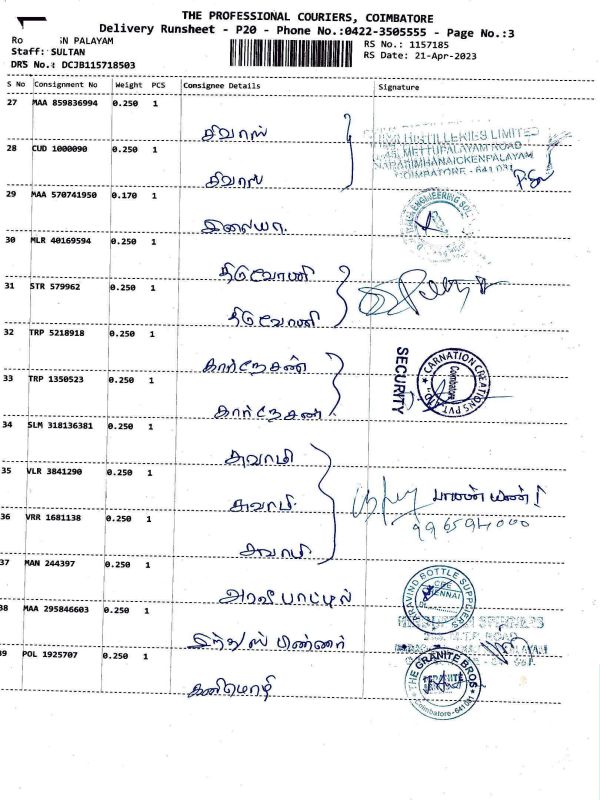 THE PROFESSIONAL COURIERS, COIMBATORE
Delivery Runsheet - P20 - Phone No.:0422-3505555 - Page No.:3
PALAYAM
Staff: SULTAN
DRS No.: DCJB115718503
RS No.: 1157185
RS Date: 21-Apr-2023
S No Consignment No Weight PCS Consignee Details Signature
27 MAA 859836994 0.250 1
சிவாஸ்
28 CUD 1000090 0.250 1
சிவாஸ்
DISTILLERIES LIMITED
METTUPALAYAM ROAD
NARASIMHANAICKENPALAYAM
COIMBATORE - 641 031
29 MAA 570741950 0.170 1
இலையா.
ENGINEERING
30 MLR 40169594 0.250 1
திருவோணி
31 STR 579962 0.250 1
திருவோணி
32 TRP 5218918 0.250 1
கார்னேசன்
33 TRP 1350523 0.250 1
கார்னேசன்
SECURITY
CARNATION CREATIONS PVT LTD.
Coimbatore
34 SLM 318136381 0.250 1
சுவாமி
35 VLR 3841290 0.250 1
சுவாமி
36 VRR 1681138 0.250 1
சுவாமி
37 MAN 244397 0.250 1
அரவி பாட்டில்
ARAVIND BOTTLE SUPPLIERS
38 MAA 295846603 0.250 1
இந்துஸ் பின்னர்
SPINNERS
ROAD
39 POL 1925707 0.250 1
கனிமொழி
THE GRANITE BROS
Coimbatore - 641 031